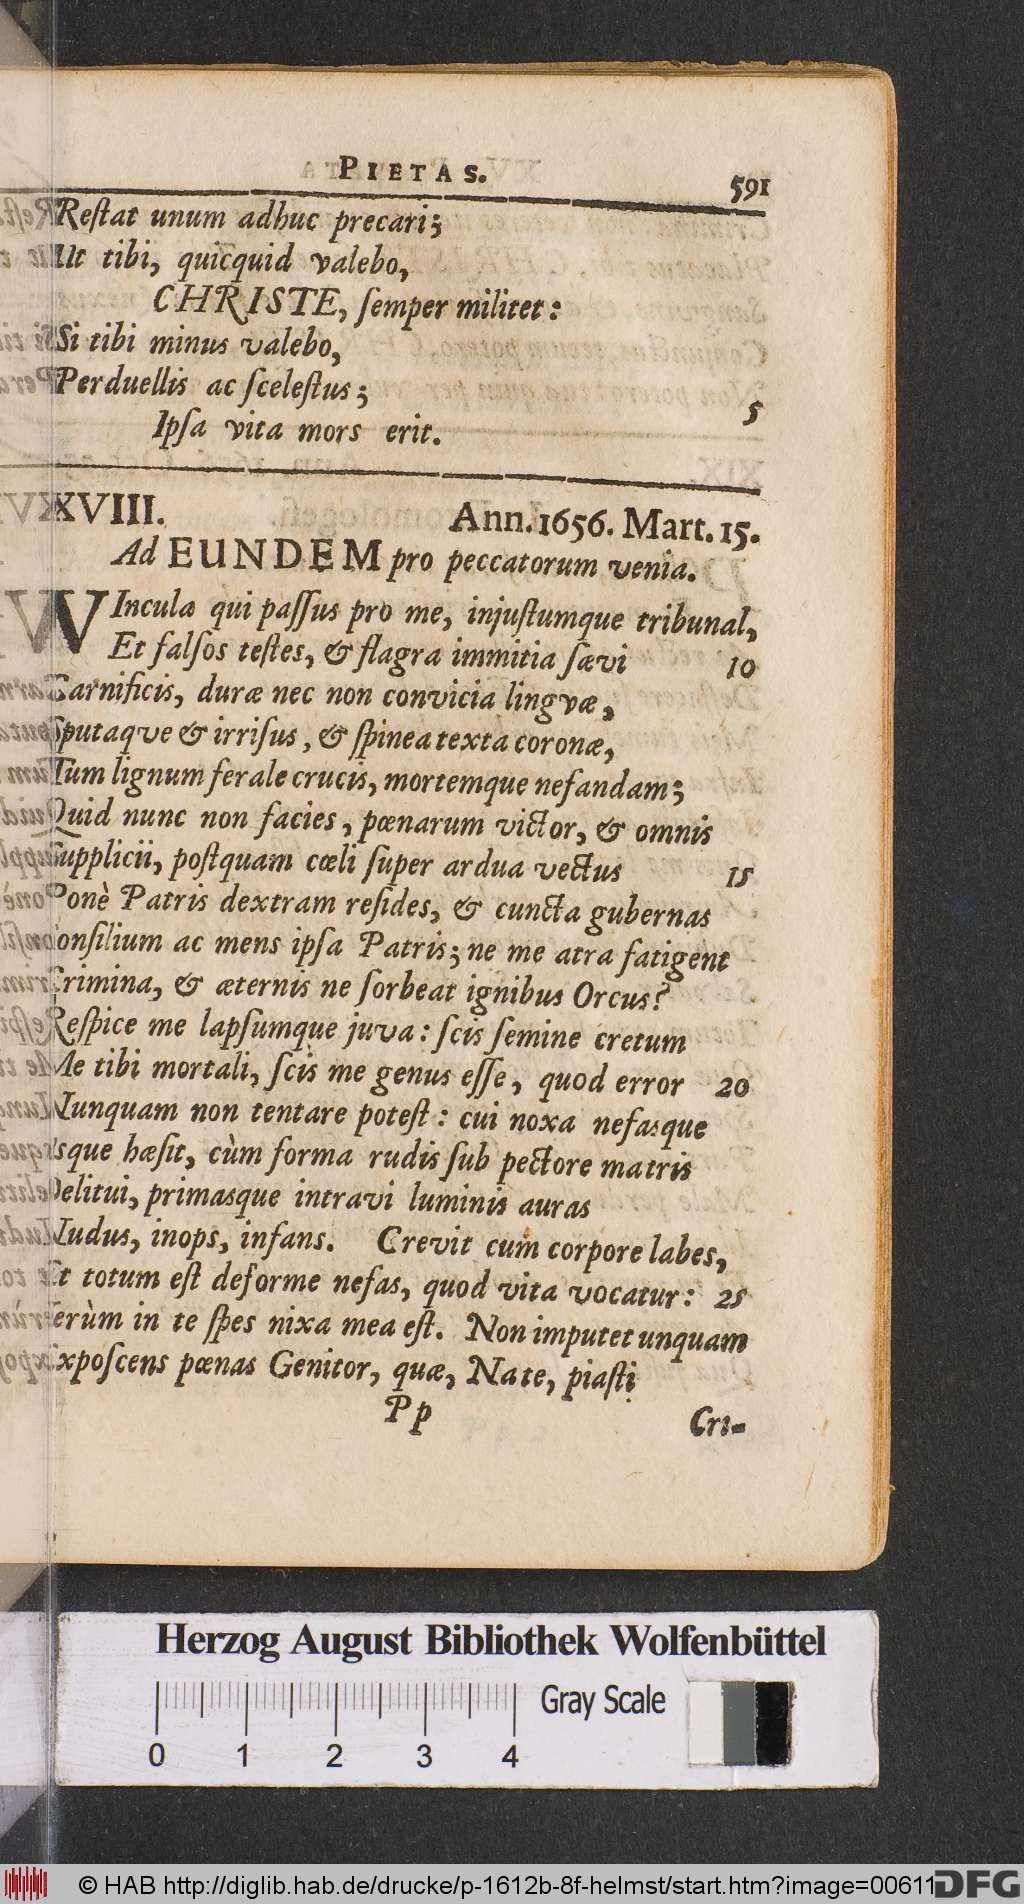 PIETAS. 591
Reſtat unum adhuc precari;
Ut tibi, quicquid valebo,
CHRISTE, ſemper militet:
Si tibi minus valebo,
Perduellis ac ſceleſtus; 5
Ipſa vita mors erit.
XVIII. Ann. 1656. Mart. 15.
Ad EUNDEM pro peccatorum veniâ.
VIncula qui paſſus pro me, injuſtumque tribunal,
Et falſos teſtes, & flagra immitia ſævi 10
Carnificis, duræ nec non convicia lingvæ,
Sputaqve & irriſus, & ſpinea texta coronæ,
Tum lignum ferale crucis, mortemque nefandam;
Quid nunc non facies, pœnarum victor, & omnis
Supplicii, poſtquam cœli ſuper ardua vectus 15
Ponè Patris dextram reſides, & cuncta gubernas
Conſilium ac mens ipſa Patris; ne me atra fatigent
Crimina, & æternis ne ſorbeat ignibus Orcus?
Reſpice me lapſumque juva: ſcis ſemine cretum
Me tibi mortali, ſcis me genus eſſe, quod error 20
Nunquam non tentare poteſt: cui noxa nefasque
Usque hæſit, cùm forma rudis ſub pectore matris
Delitui, primasque intravi luminis auras
Nudus, inops, infans. Crevit cum corpore labes,
Et totum eſt deforme nefas, quod vita vocatur: 25
Verùm in te ſpes nixa mea eſt. Non imputet unquam
Expoſcens pœnas Genitor, quæ, Nate, piaſti
Pp Cri-
Herzog August Bibliothek Wolfenbüttel
Gray Scale
0 1 2 3 4
© HAB http://diglib.hab.de/drucke/p-1612b-8f-helmst/start.htm?image=00611
DFG